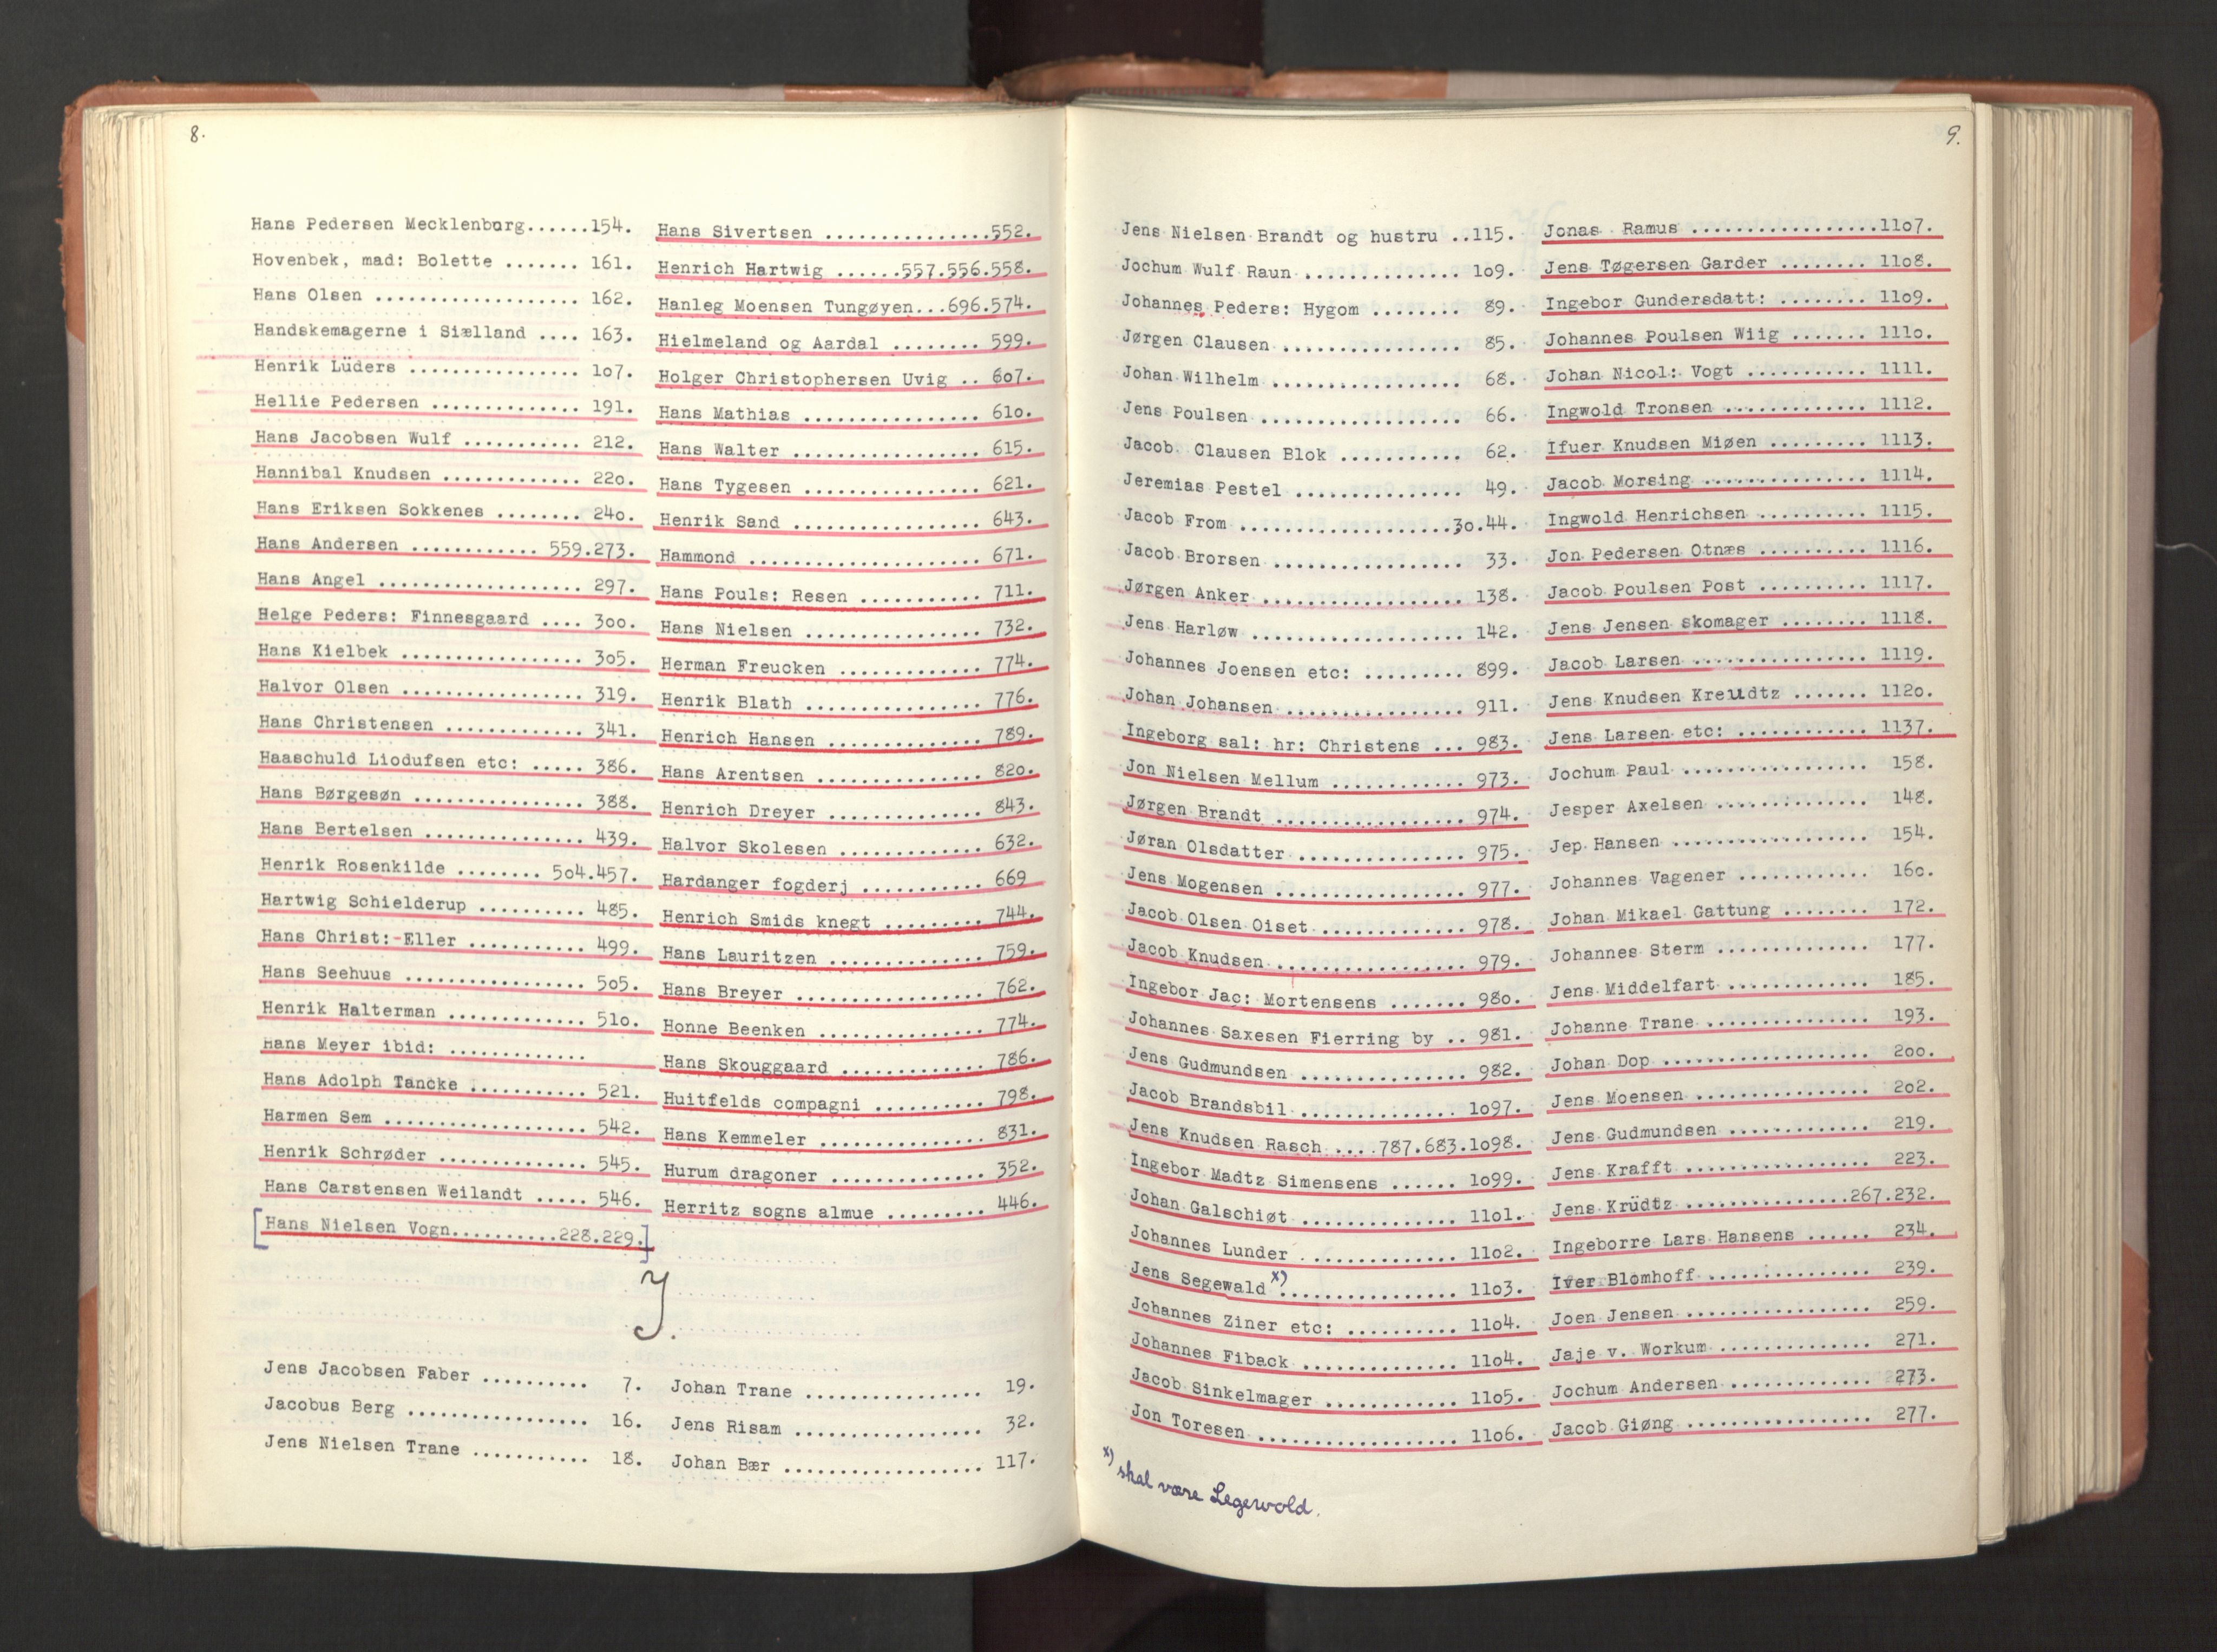 8.
Hans Pedersen Mecklenborg......154.
Hovenbek, mad: Bolette ....... 161.
Hans Olsen .................. 162.
Handskemagerne i Siælland .... 163.
Henrik Lüders ............... 1o7.
Hellie Pedersen ............. 191.
Hans Jacobsen Wulf ........... 212.
Hannibal Knudsen ............. 22o.
Hans Eriksen Sokkenes ........ 24o.
Hans Andersen ............ 559.273.
Hans Angel .................. 297.
Helge Peders: Finnesgaard .... 3oo.
Hans Kielbek ................ 3o5.
Halvor Olsen ................ 319.
Hans Christensen ............ 341.
Haaschuld Liodufsen etc: ..... 386.
Hans Børgesøn ................ 388.
Hans Bertelsen ............... 439.
Henrik Rosenkilde ........ 5o4.457.
Hartwig Schielderup .......... 485.
Hans Christ:-Eller ........... 499.
Hans Seehuus ................. 5o5.
Henrik Halterman ............. 51o.
Hans Meyer ibid: .............
Hans Adolph Tancke ........... 521.
Harmen Sem ................... 542.
Henrik Schrøder .............. 545.
Hans Carstensen Weilandt ..... 546.
[Hans Nielsen Vogn..........228.229.]
Hans Sivertsen ................552.
Henrich Hartwig ......557.556.558.
Hanleg Moensen Tungøyen...696.574.
Hielmeland og Aardal ........ 599.
Holger Christophersen Uvig .. 6o7.
Hans Mathias ................. 61o.
Hans Walter .................. 615.
Hans Tygesen ................. 621.
Henrik Sand .................. 643.
Hammond ...................... 671.
Hans Pouls: Resen ............ 711.
Hans Nielsen ................. 732.
Herman Freucken .............. 774.
Henrik Blath ................. 776.
Henrich Hansen ............... 789.
Hans Arentsen ................ 82o.
Henrich Dreyer ............... 843.
Halvor Skolesen .............. 632.
Hardanger fogderj ............ 669
Henrich Smids knegt .......... 744.
Hans Lauritzen ............... 759.
Hans Breyer .................. 762.
Honne Beenken ................ 774.
Hans Skouggaard .............. 786.
Huitfelds compagni ........... 798.
Hans Kemmeler ................ 831.
Hurum dragoner ............... 352.
Herritz sogns almue .......... 446.
J.
Jens Jacobsen Faber .......... 7.
Jacobus Berg ................. 16.
Jens Nielsen Trane ........... 18.
Johan Trane .................. 19.
Jens Risam ................... 32.
Johan Bær .................... 117.
9.
Jens Nielsen Brandt og hustru ..115.
Jochum Wulf Raun .............. 1o9.
Johannes Peders: Hygom ........ 89.
Jørgen Clausen ................ 85.
Johan Wilhelm ................. 68.
Jens Poulsen .................. 66.
Jacob Clausen Blok ............ 62.
Jeremias Pestel ............... 49.
Jacob From ..................3o.44.
Jacob Brorsen ................. 33.
Jørgen Anker .................. 138.
Jens Harløw ................... 142.
Johannes Joensen etc: ......... 899.
Johan Johansen ................ 911.
Ingeborg sal: hr: Christens ... 983.
Jon Nielsen Mellum ............ 973.
Jørgen Brandt ................. 974.
Jøran Olsdatter ............... 975.
Jens Mogensen ................. 977.
Jacob Olsen Oiset ............. 978.
Jacob Knudsen ................. 979.
Ingebor Jac: Mortensens ....... 98o.
Johannes Saxesen Fierring by .. 981.
Jens Gudmundsen ............... 982.
Jacob Brandsbil .............. 1o97.
Jens Knudsen Rasch ....787.683.1o98.
Ingebor Madtz Simensens ...... 1o99.
Johan Galschiøt .............. 11o1.
Johannes Lunder .............. 11o2.
Jens Segewald x) ............. 11o3.
Johannes Ziner etc: .......... 11o4.
Johannes Fiback .............. 11o4.
Jacob Sinkelmager ............ 11o5.
Jon Toresen .................. 11o6.
x) skal være Legewold.
Jonas Ramus ..................11o7.
Jens Tøgersen Garder ........ 11o8.
Ingebor Gundersdatt: ........ 11o9.
Johannes Poulsen Wiig ....... 111o.
Johan Nicol: Vogt ........... 1111.
Ingwold Tronsen ............. 1112.
Ifuer Knudsen Miøen ......... 1113.
Jacob Morsing ............... 1114.
Ingwold Henrichsen .......... 1115.
Jon Pedersen Otnæs .......... 1116.
Jacob Poulsen Post .......... 1117.
Jens Jensen skomager ........ 1118.
Jacob Larsen ................ 1119.
Jens Knudsen Kreudtz ....... 112o.
Jens Larsen etc: ............ 1137.
Jochum Paul ................. 158.
Jesper Axelsen .............. 148.
Jep Hansen .................. 154.
Johannes Vagener ............ 16o.
Johan Mikael Gattung ........ 172.
Johannes Sterm .............. 177.
Jens Middelfart ............. 185.
Johanne Trane ............... 193.
Johan Dop ................... 2oo.
Jens Moensen ................ 2o2.
Jens Gudmundsen ............. 219.
Jens Krafft ................. 223.
Jens Krüdtz ...............267.232.
Ingeborre Lars Hansens ...... 234.
Iver Blomhoff ............... 239.
Joen Jensen ................. 259.
Jaje v. Workum .............. 271.
Jochum Andersen ............. 273.
Jacob Giøng ................. 277.